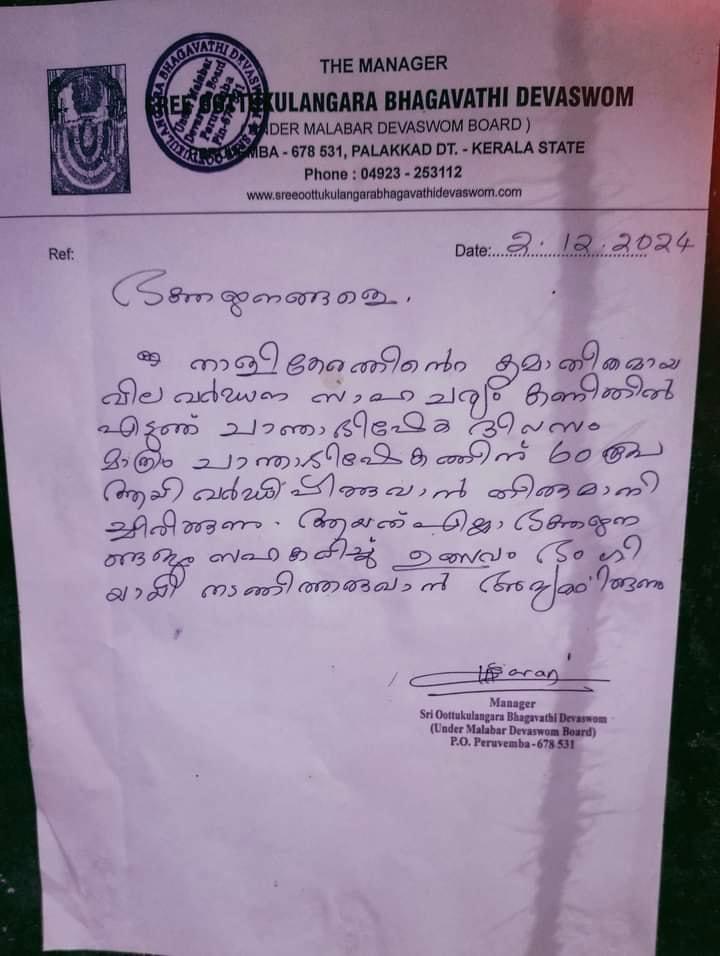 THE MANAGER
SREE OOTTUKULANGARA BHAGAVATHI DEVASWOM
(UNDER MALABAR DEVASWOM BOARD )
PERUVEMBA - 678 531, PALAKKAD DT. - KERALA STATE
Phone : 04923 - 253112
www.sreeoottukulangarabhagavathidevaswom.com
Under Malabar
Devaswom Board
Peruvemba
Pin-678 531
Ref:
Date: 2.12.2024
ഭക്തജനങ്ങളെ,
നാളികേരത്തിൻെറ ക്രമാതീതമായ
വില വർദ്ധന സാഹചര്യം കണക്കിൽ
എടുത്ത് ചാന്താഭിഷേക ദിവസം
മാത്രം ചാന്താഭിഷേകത്തിന് 60 രൂപ
ആയി വർദ്ധിപ്പിക്കുവാൻ തീരുമാനി
ച്ചിരിക്കുന്നു. ആയത് എല്ലാ ഭക്തജന
ങ്ങളും സഹകരിച്ച് ഉത്സവം ഭംഗി
യായി നടത്തിത്തരുവാൻ അഭ്യർത്ഥിക്കുന്നു
Manager
Sri Oottukulangara Bhagavathi Devaswom
(Under Malabar Devaswom Board)
P.O. Peruvemba-678 531